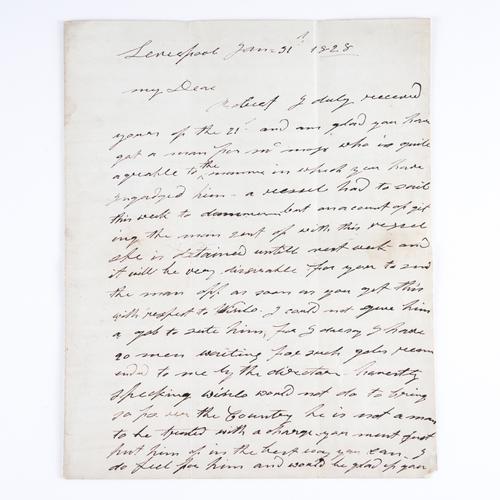 Leverpool Jan. 31st 1828
my Dear
Robert I duly received
yours of the 21st and am glad you have
got a man for mr who is quite
agreable to the manner in which you have
engadged him - a vessel had to sail
this week to but on acount of git
ing the man sent of with this vessel
she is detained untill next week and
it will be very disirable for you to send
the man off as soon as you get this
with respect to I could not give him
a job to suite him, for I dare say I have
20 men waiting for such jobs recom
ended to me by the directors. honestly
speaking would not do to bring
so far over the Country he is not a man
to be trusted with a charge you must just
put him of in the best way you can, I
do feel for him and would be glad if you